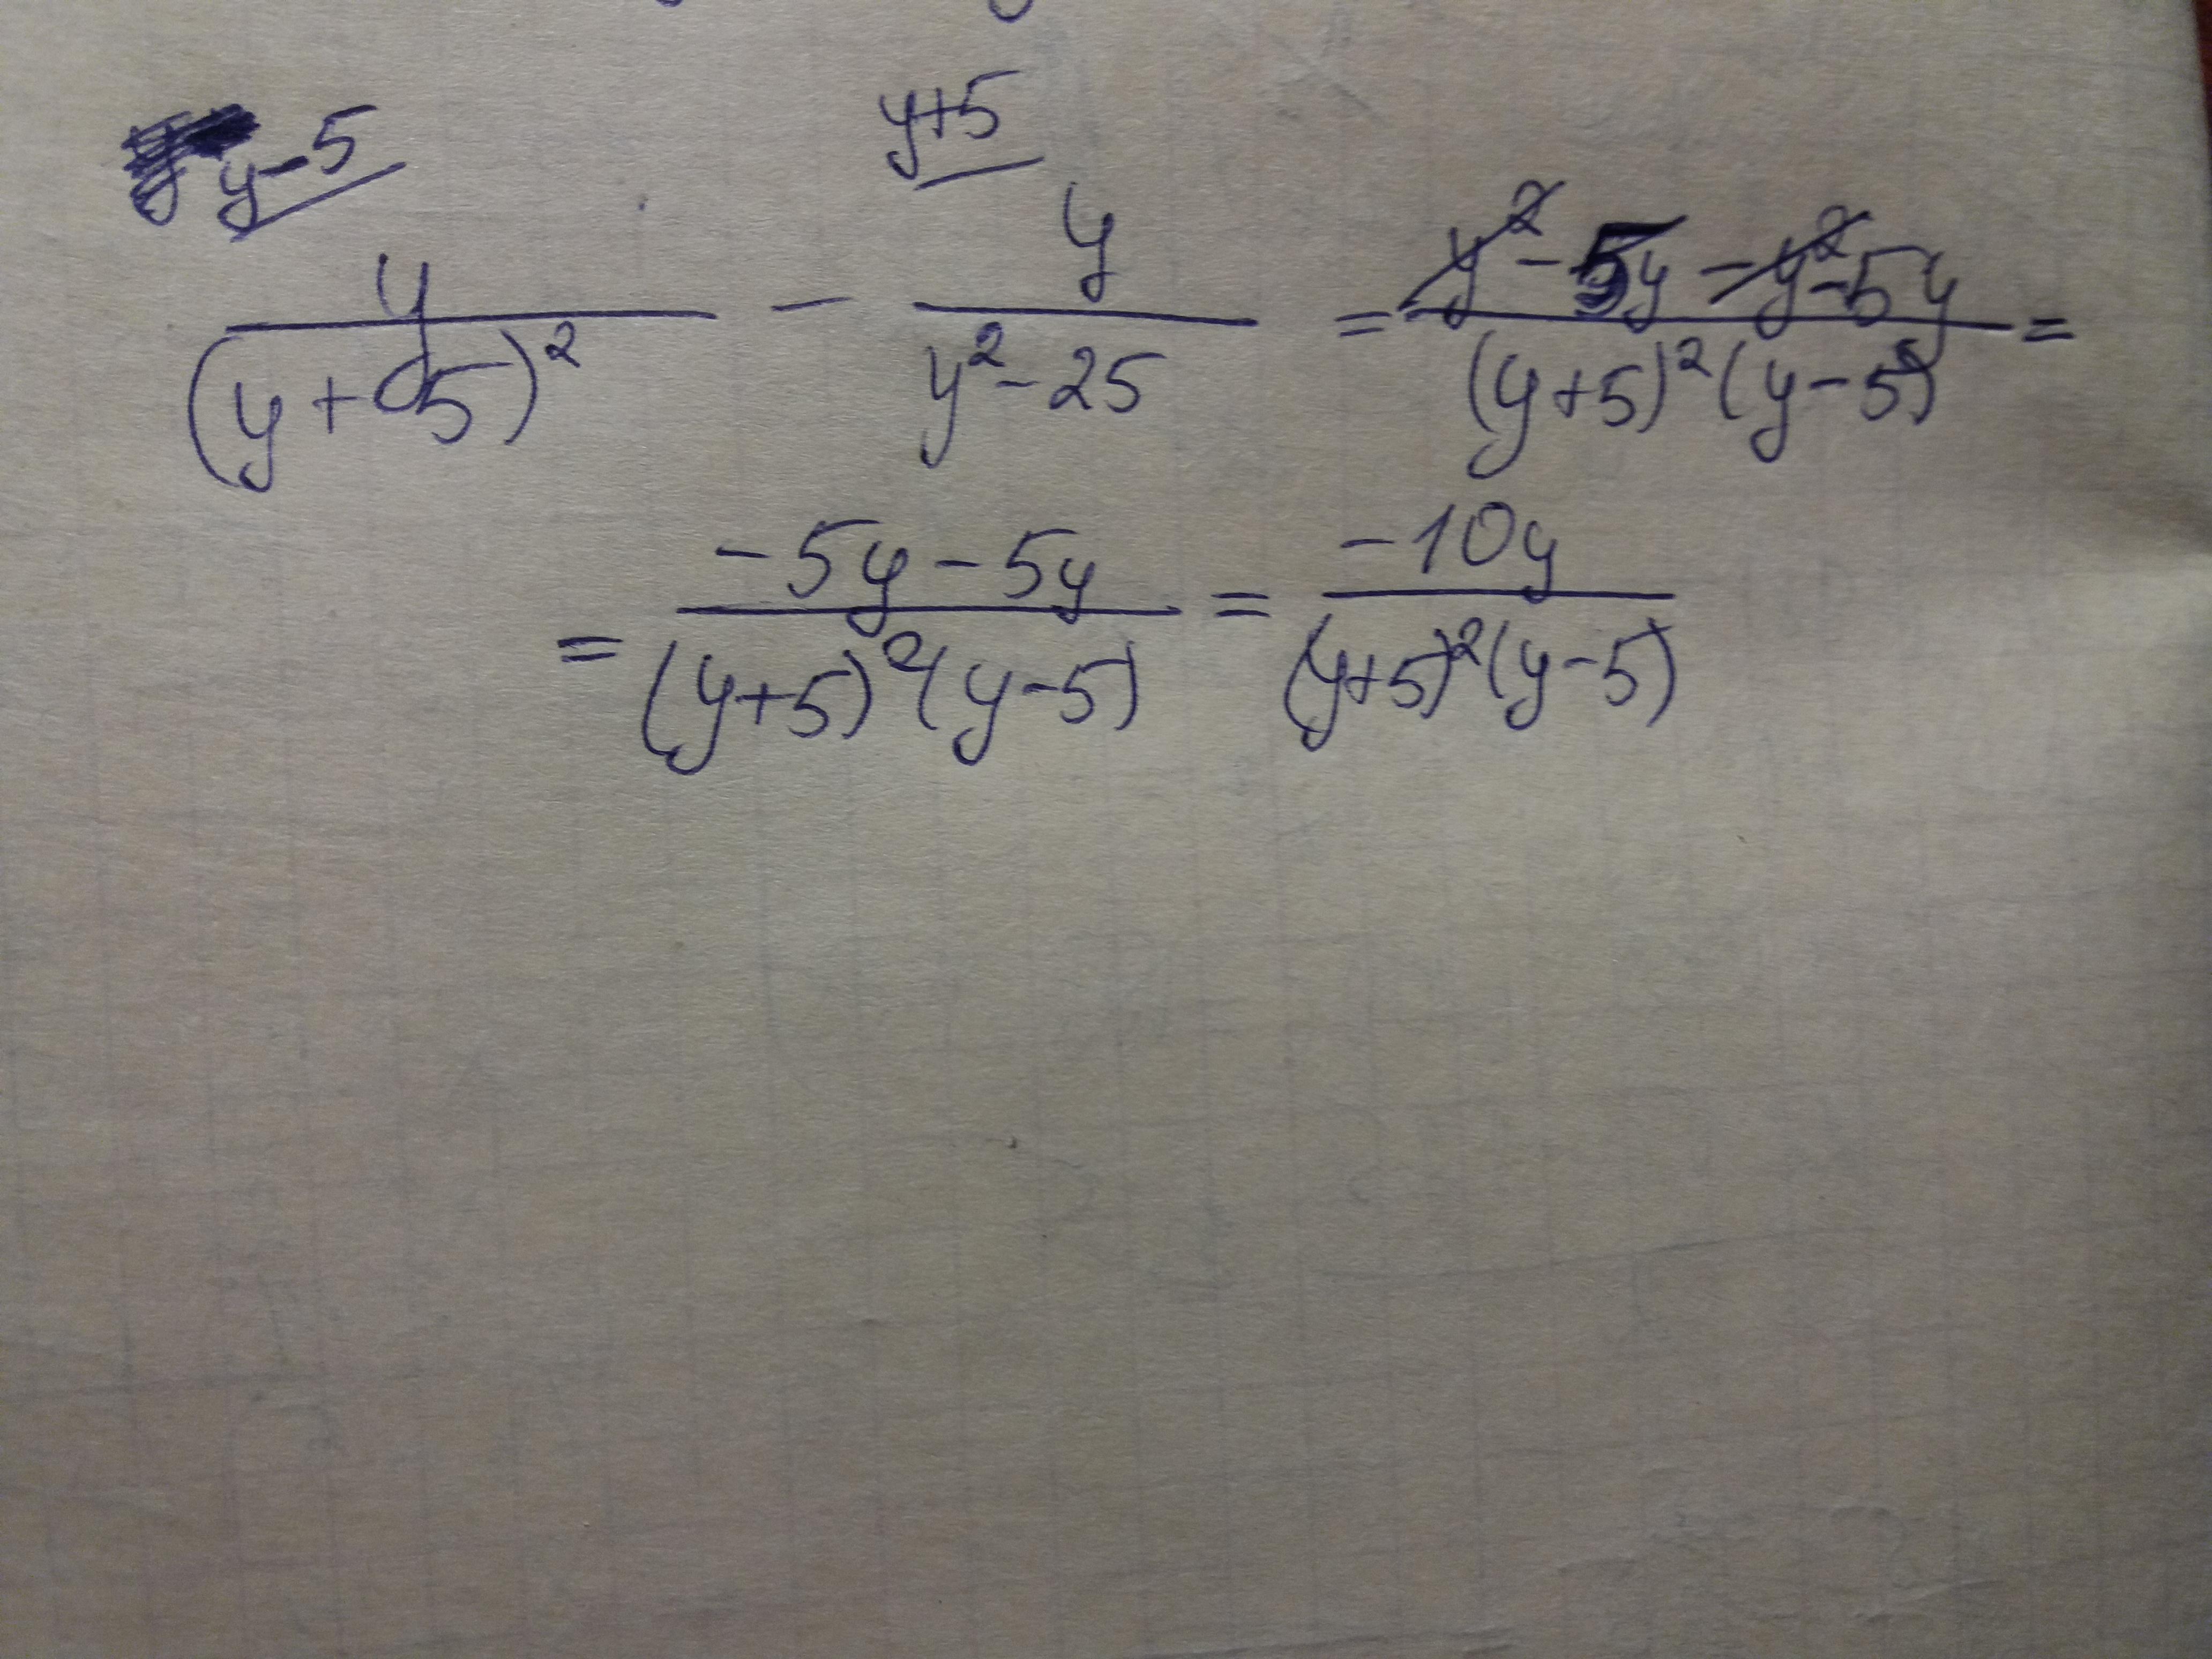 y-5 y+5
y/(y+5)² - y/(y²-25) = (y²-5y-y²-5y)/((y+5)²(y-5)) =
= (-5y-5y)/((y+5)²(y-5)) = (-10y)/((y+5)²(y-5))